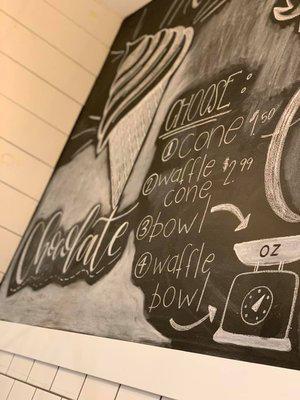 CHOOSE:
① CONE
② waffle cone $2.99
③ bowl
④ waffle bowl
OZ
Chocolate